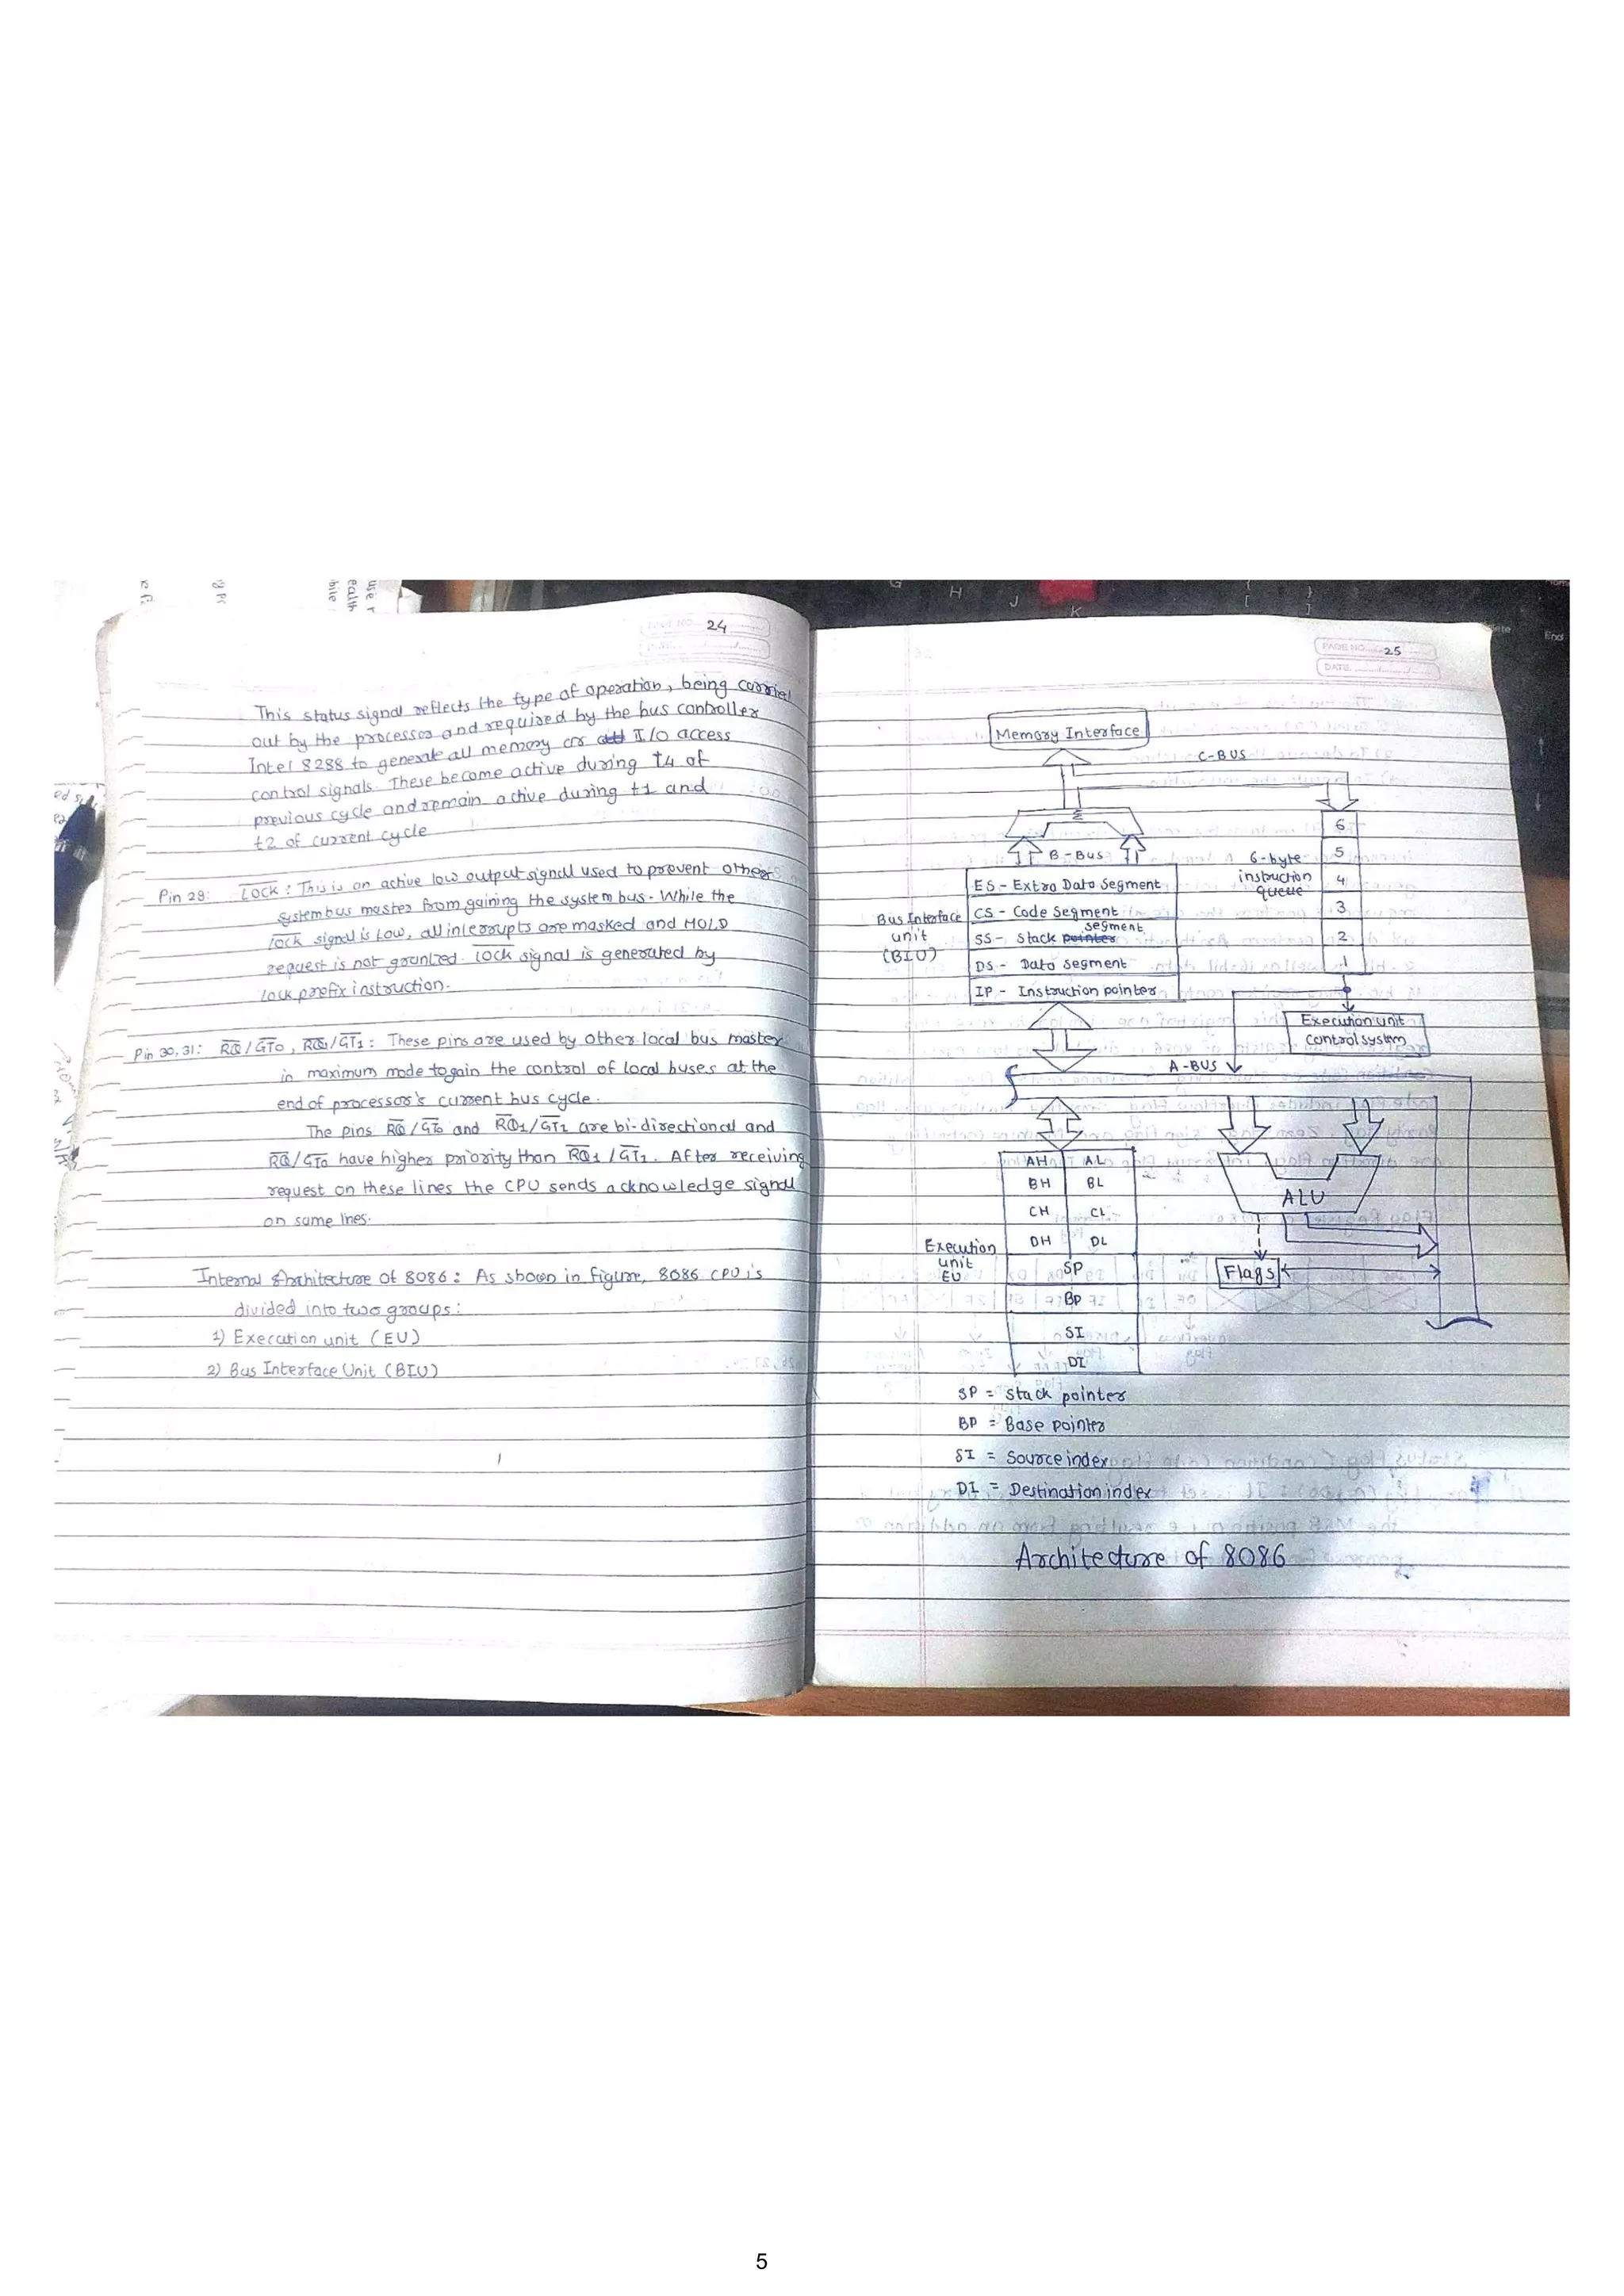 24
This status signal reflects the type of operation, being carried
out by the processor and required by the bus controller
Intel 8288 to generate all memory or I/O access
control signals. These become active during t4 of
previous cycle and remain active during t1 and
t2 of current cycle
Pin 29: LOCK : This is an active low output signal used to prevent other
system bus master from gaining the system bus. While the
lock signal is low, all interrupts are masked and HOLD
request is not granted. LOCK signal is generated by
lock prefix instruction.
Pin 30,31: RQ/GT0, RQ1/GT1 : These pins are used by other local bus master
in maximum mode to gain the control of local buses at the
end of processor's current bus cycle.
The pins RQ/GT0 and RQ1/GT1 are bi-directional and
RQ/GT0 have higher priority than RQ1/GT1. After receiving
request on these lines the CPU sends acknowledge signal
on same lines.
Internal Architecture of 8086 : As shown in figure, 8086 CPU is
divided into two groups :
1) Execution unit (EU)
2) Bus Interface Unit (BIU)
PAGE NO. 25
DATE
Memory Interface
C-BUS
Σ
B-BUS
6
5
4
3
2
1
6-byte
instruction
queue
Bus Interface
unit
(BIU)
ES - Extra Data Segment
CS - Code Segment
segment
SS - Stack pointer
DS - Data segment
IP - Instruction pointer
Execution unit
control system
A-BUS
AH AL
BH BL
CH CL
DH DL
SP
BP
SI
DI
Execution
unit
EU
ALU
Flags
SP = Stack pointer
BP = Base pointer
SI = Source index
DI = Destination index
Architecture of 8086
5